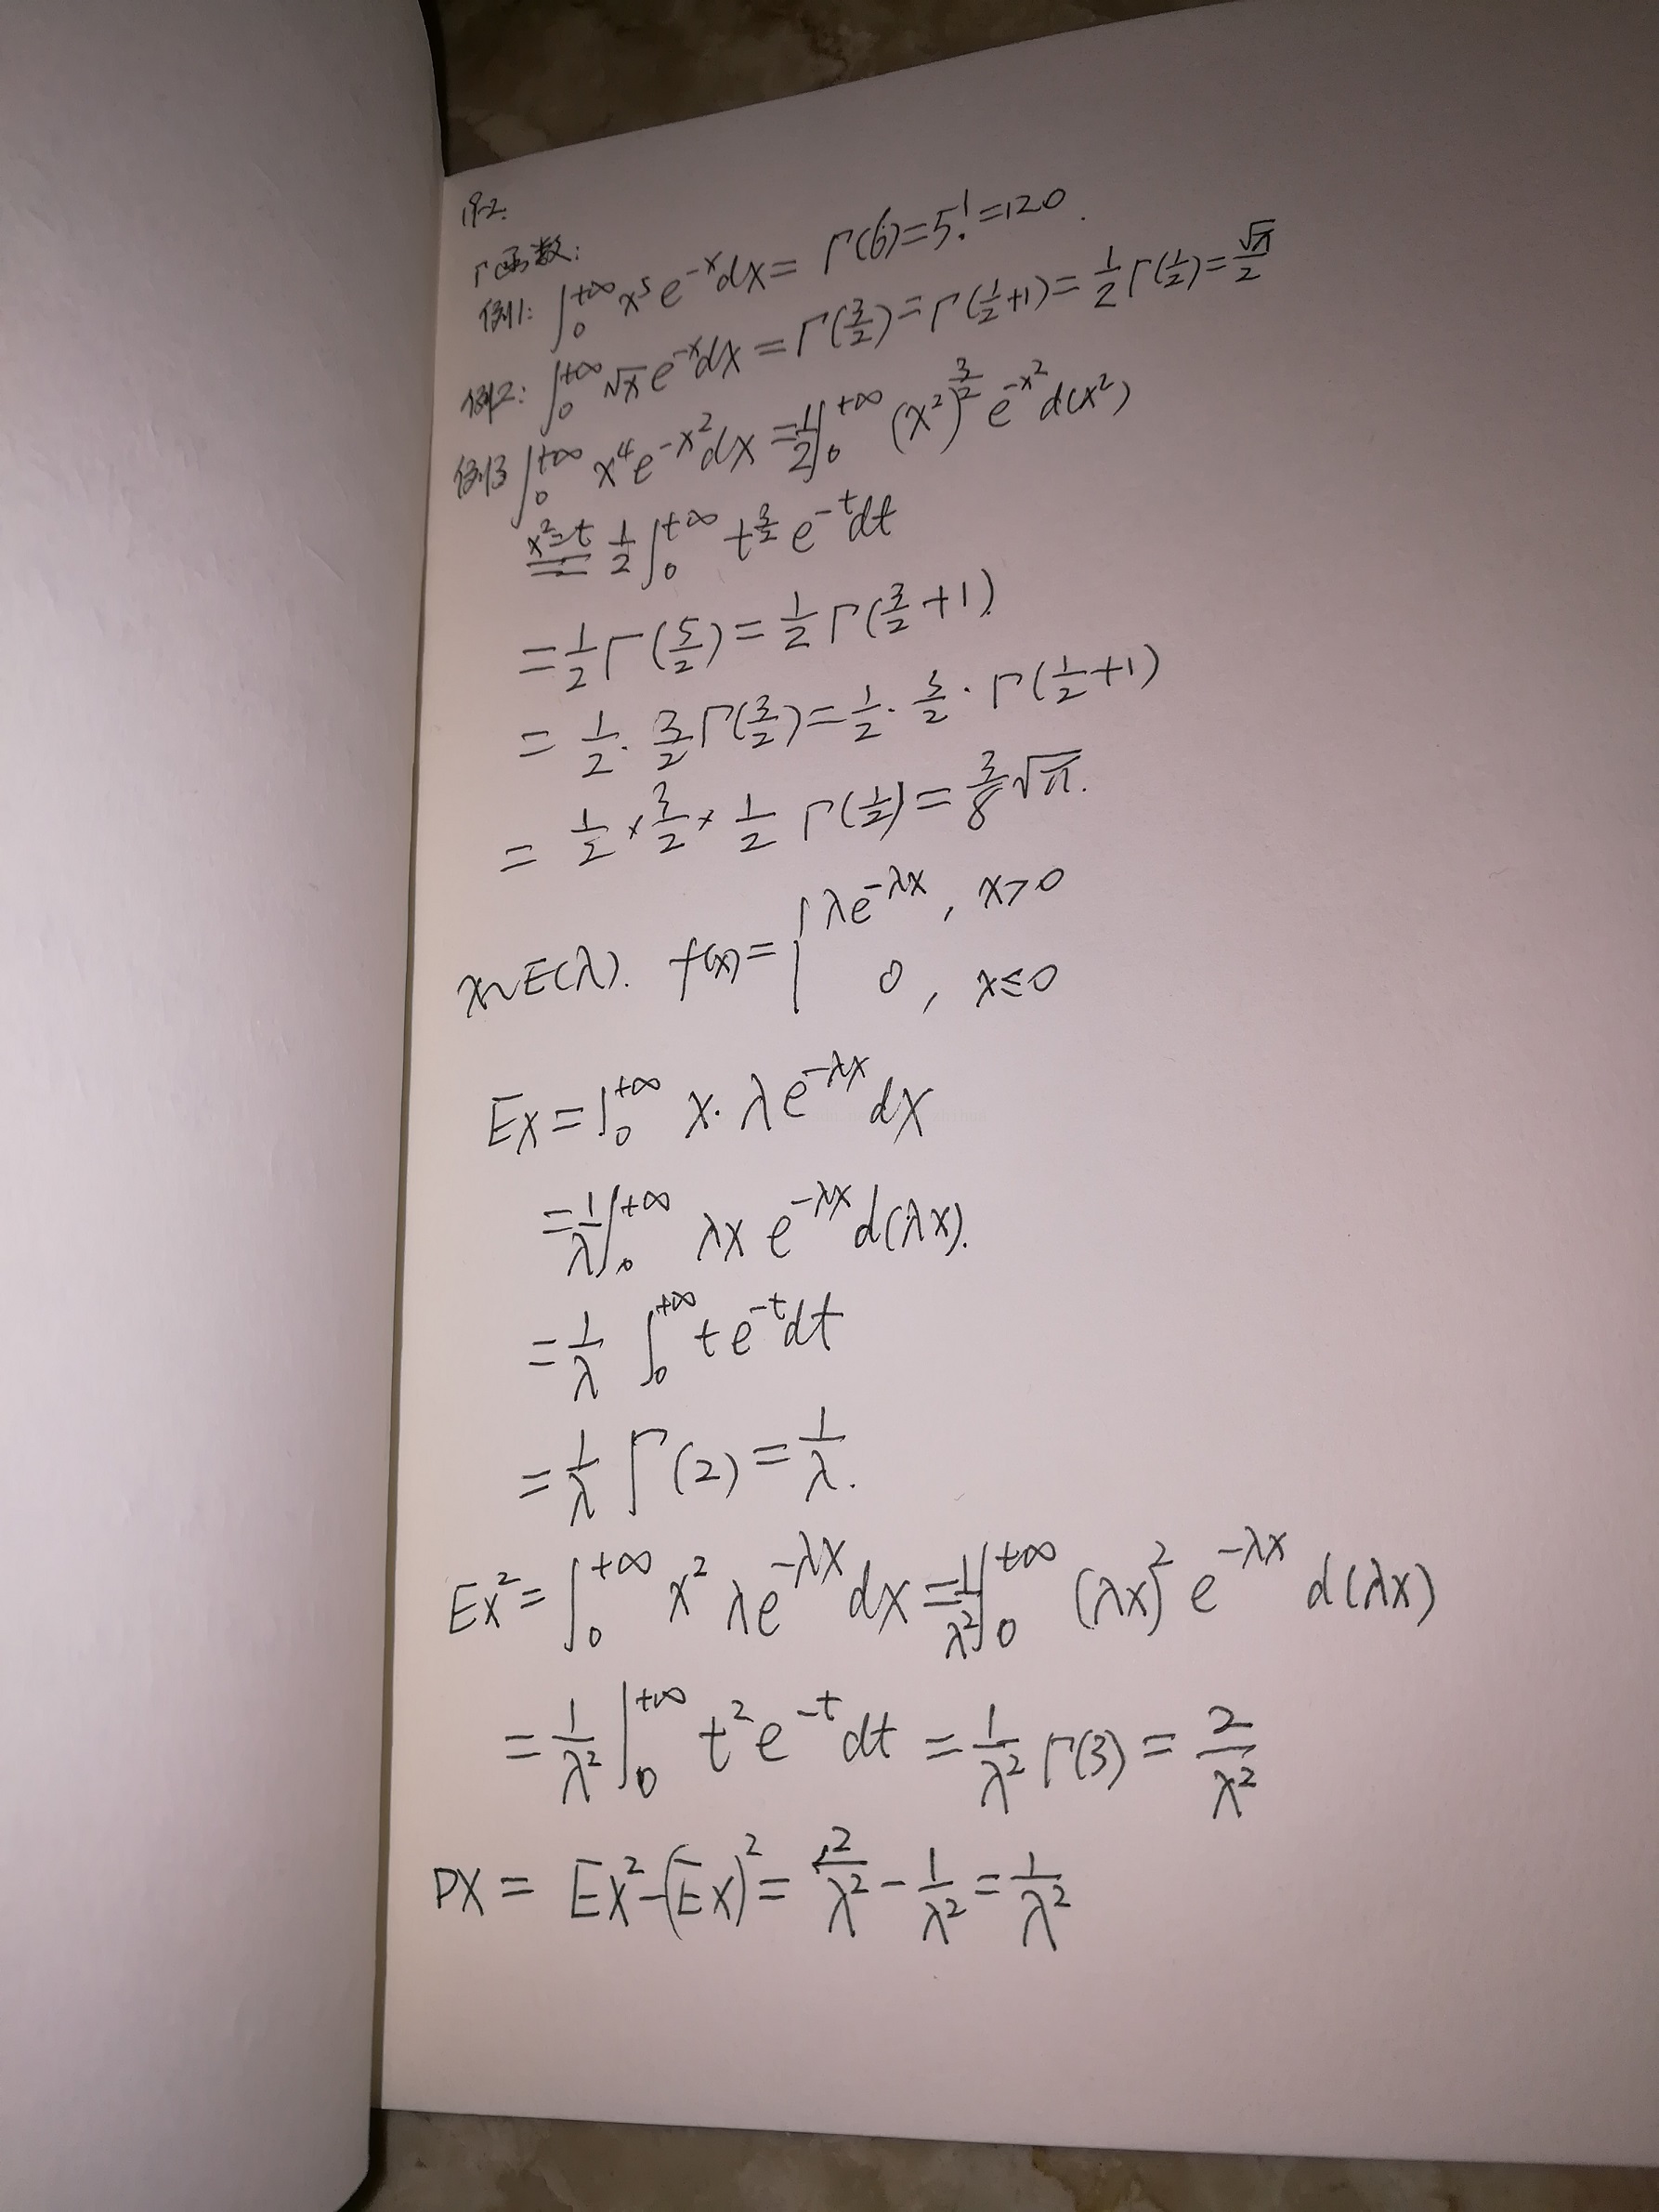 19-2.
Γ函数:
例1: ∫₀^{+∞} x⁵e^{-x}dx = Γ(6)=5!=120.
例2: ∫₀^{+∞} √x e^{-x}dx = Γ(3/2) = Γ(1/2+1) = 1/2 Γ(1/2) = √π/2
例3 ∫₀^{+∞} x⁴e^{-x²}dx = 1/2 ∫₀^{+∞} (x²)^{3/2} e^{-x²} d(x²)
x²=t = 1/2 ∫₀^{+∞} t^{3/2} e^{-t}dt
= 1/2 Γ(5/2) = 1/2 Γ(3/2+1)
= 1/2 · 3/2 Γ(3/2) = 1/2 · 3/2 · Γ(1/2+1)
= 1/2 × 3/2 × 1/2 Γ(1/2) = 3/8 √π.
X~E(λ). f(x) = { λe^{-λx}, x>0
0, x≤0
EX = ∫₀^{+∞} x·λe^{-λx}dx
= 1/λ ∫₀^{+∞} λx e^{-λx} d(λx).
= 1/λ ∫₀^{+∞} te^{-t}dt
= 1/λ Γ(2) = 1/λ.
EX² = ∫₀^{+∞} x² λe^{-λx}dx = 1/λ² ∫₀^{+∞} (λx)² e^{-λx} d(λx)
= 1/λ² ∫₀^{+∞} t²e^{-t}dt = 1/λ² Γ(3) = 2/λ²
DX = EX²-(EX)² = 2/λ² - 1/λ² = 1/λ²